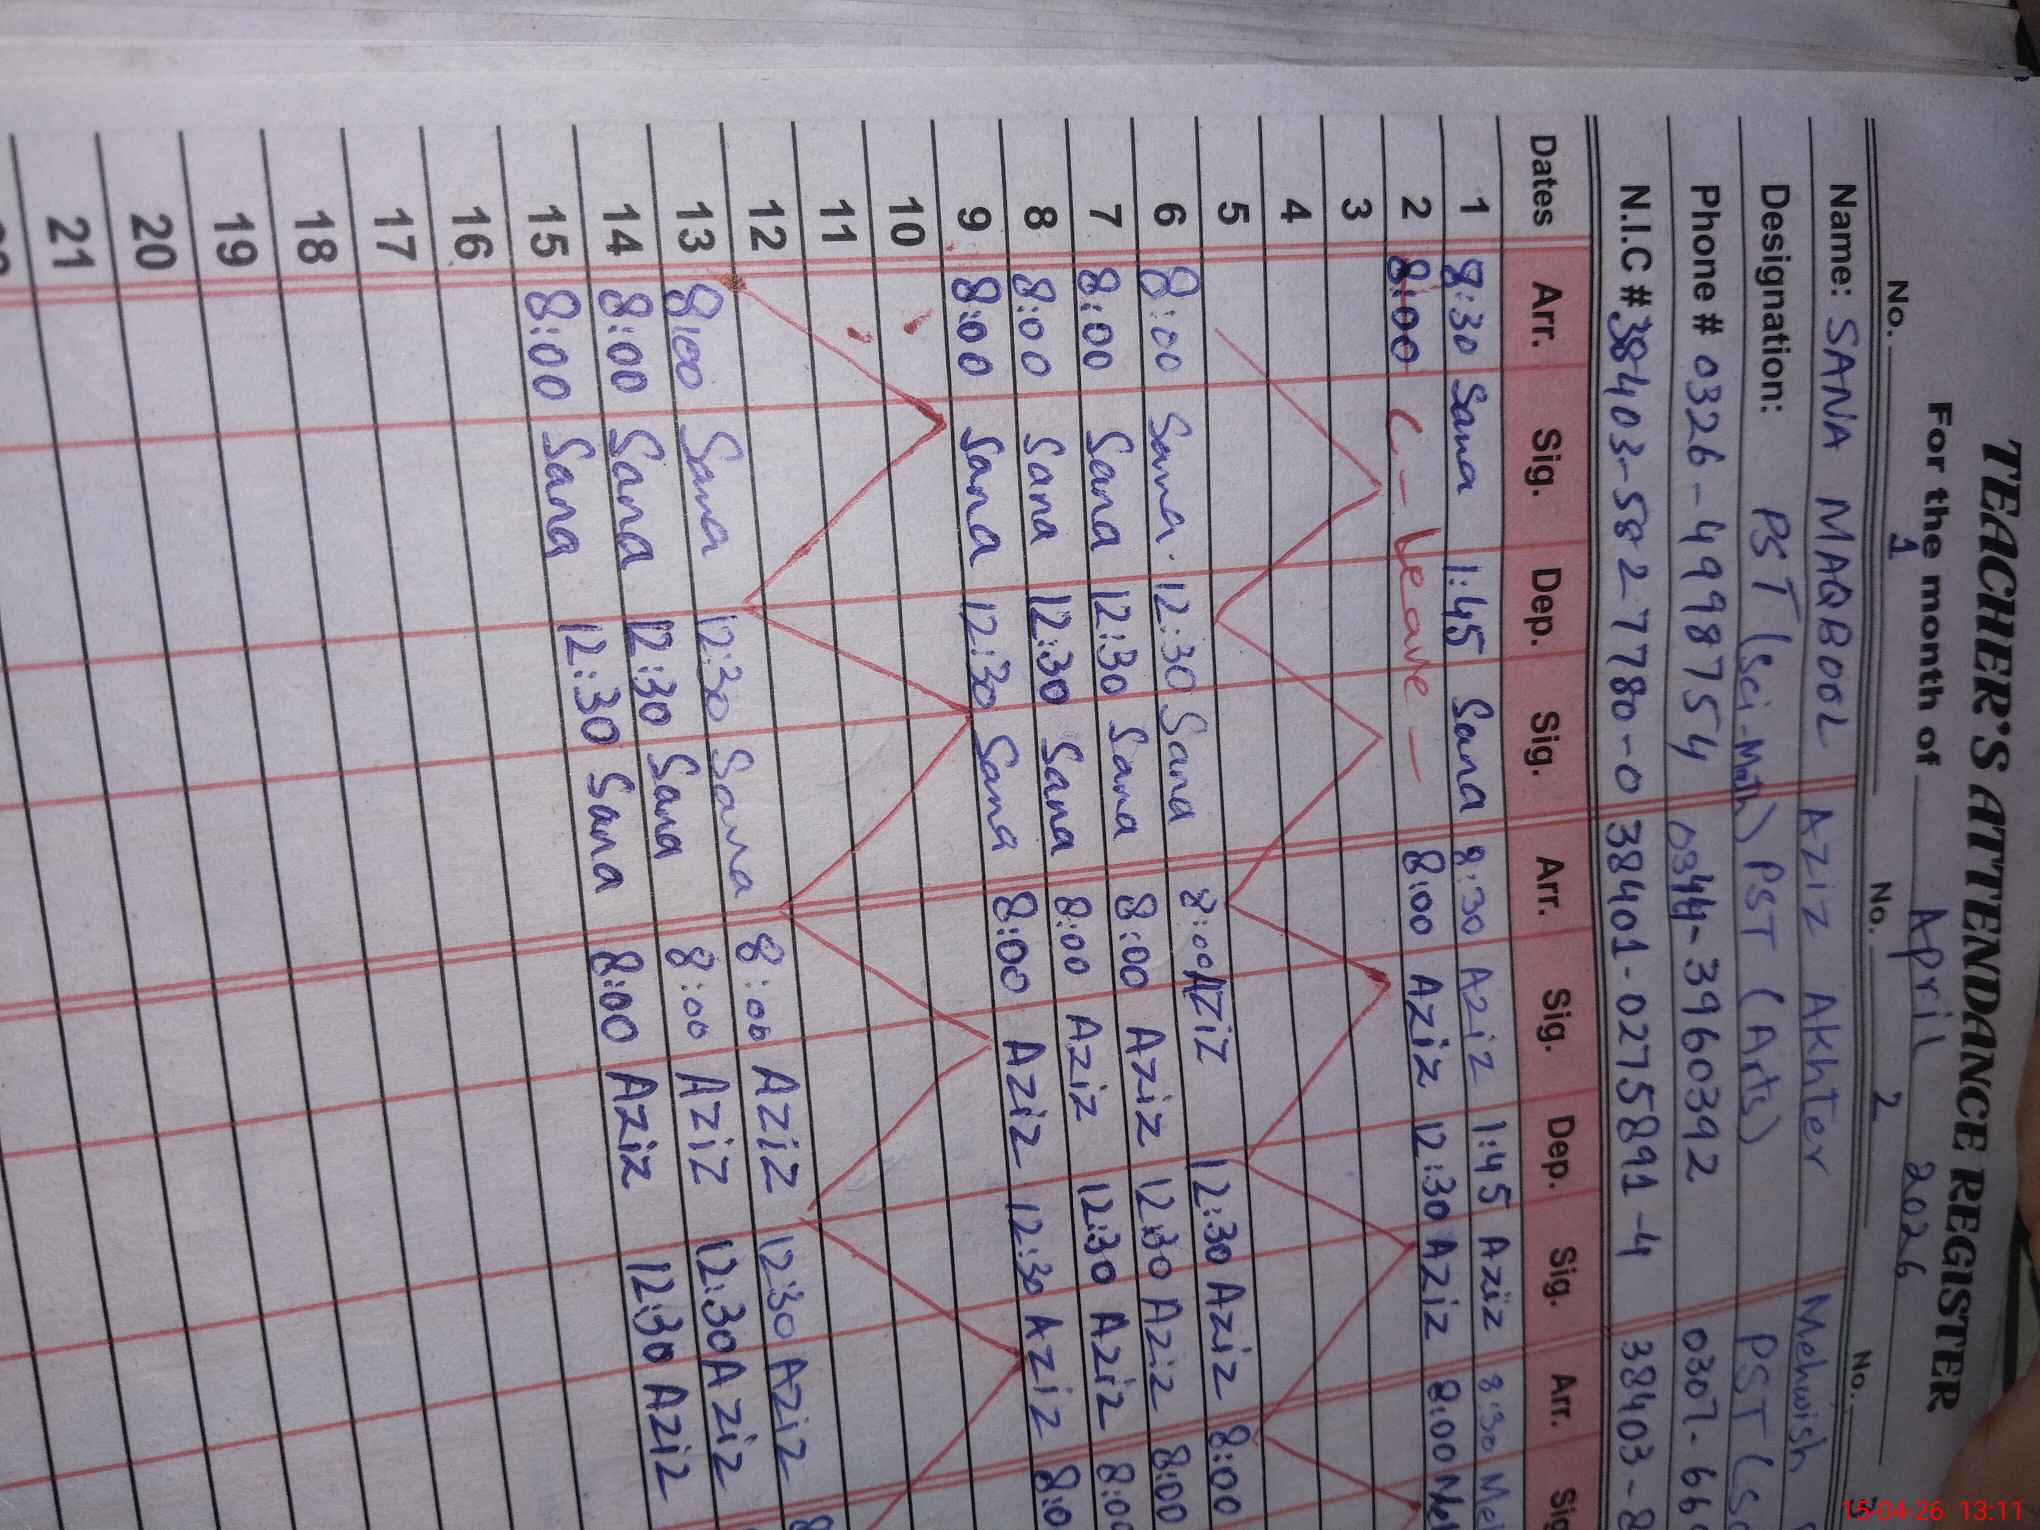 TEACHER'S ATTENDANCE REGISTER
For the month of April 2026
No. 1 No. 2 No.
Name: SANA MAQBOOL Aziz Akhter Mehwish
Designation: PST (Sci-Math) PST (Arts) PST (Sc
Phone # 0326-4998754 0344-3960392 0307-66
N.I.C # 38403-5827780-0 38401-0275891-4 38403-8
Dates Arr. Sig. Dep. Sig. Arr. Sig. Dep. Sig. Arr. Sig
1 8:30 Sana 1:45 Sana 8:30 Aziz 1:45 Aziz 8:30 Meh
2 8:00 C-Leave- 8:00 Aziz 12:30 Aziz 8:00 Meh
3
4
5
6 8:00 Sana 12:30 Sana 8:00 Aziz 12:30 Aziz 8:00
7 8:00 Sana 12:30 Sana 8:00 Aziz 12:30 Aziz 8:00
8 8:00 Sana 12:30 Sana 8:00 Aziz 12:30 Aziz 8:00
9 8:00 Sana 12:30 Sana 8:00 Aziz 12:30 Aziz 8:0
10
11
12
13 8:00 Sana 12:30 Sana 8:00 Aziz 12:30 Aziz 8
14 8:00 Sana 12:30 Sana 8:00 Aziz 12:30 Aziz
15 8:00 Sana 12:30 Sana 8:00 Aziz 12:30 Aziz
16
17
18
19
20
21
15-04-26 13:11